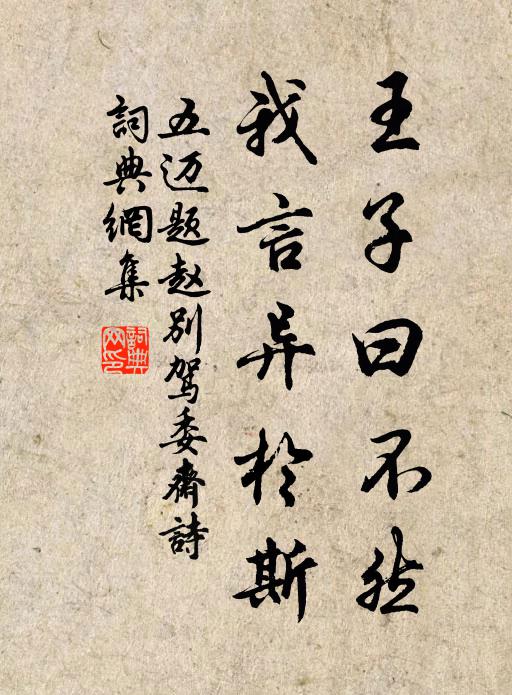 王子曰不然
我言异於斯
五迈题赵别驾委斋詩
詞典網集
詞典网印